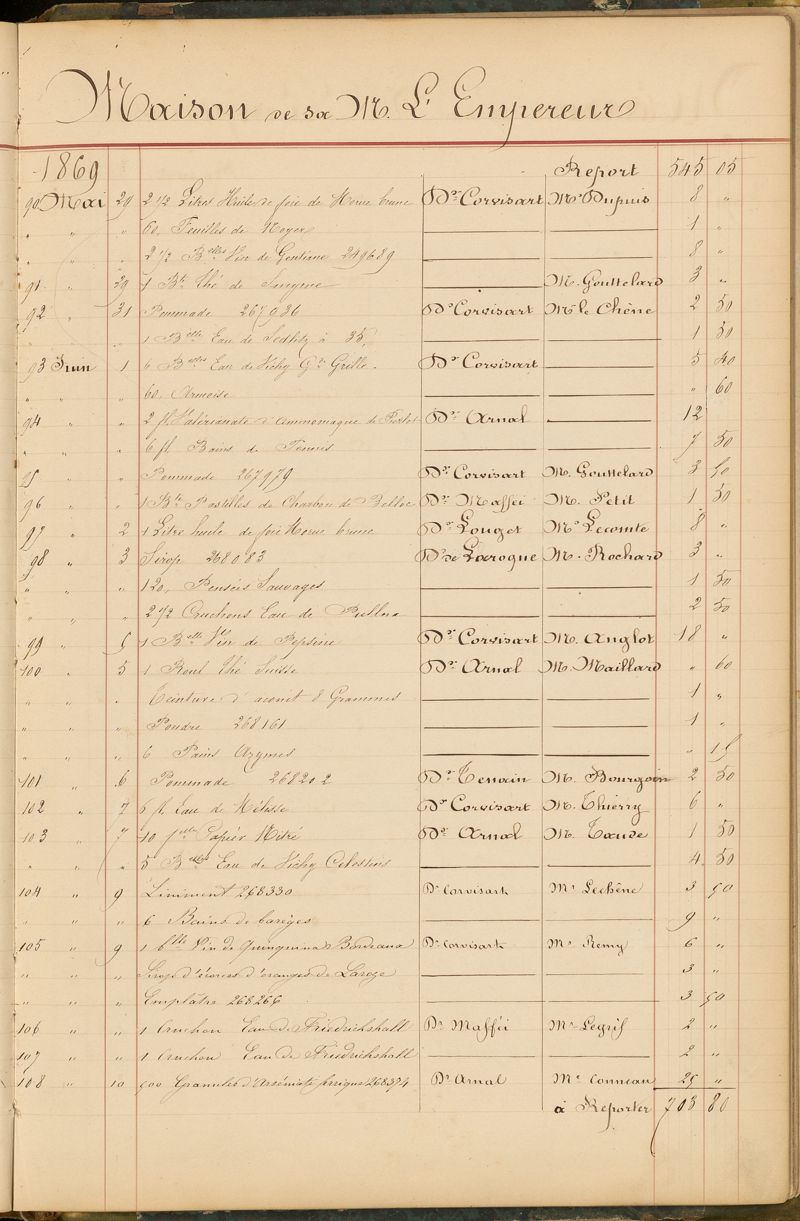 Maison de sa M. L'Empereur
1869 Report 545 05
90 Mai 29 2 1/2 Litres Huile de foie de Morue brune Dr Corvisart Mr Dupuis 8 "
" " " 60, Feuilles de Noyer 1 "
2 1/2 Blles Vin de Gentiane 249689 8 "
91 " 29 1 Bte thé de Smyrne M. Gouttelard 3 "
92 " 31 Pommade 267936 Dr Corvisart M le Chêne 2 50
" " " 1 Blle Eau de Sedlitz à 35, 1 50
93 Juin 1 6 Blles Eau de Vichy Gde Grille. Dr Corvisart 5 40
" " " 60, Armoise " 60
94 " " 2 fl. Valérianate d'Ammoniaque de Dr Arnal 12
" " " 6 fl Bains de Tennis 7 50
95 " " Pommade 267979 Dr Corvisart M. Gouttelard 3 50
96 " " 1 Bte Pastilles de Charbon de Belloc Dr Maffei M. Petit 1 50
97 " 2 1 Litre huile de foie Morue brune Dr Louget Mr Lecomte 8 "
98 " 3 Sirop 268083 Dr de Laroque M. Rochard 3 "
" " " 120, Pensées Sauvages 1 50
" " " 2 1/2 Cruchons Eau de Pullna 2 50
99 " 5 1 Blle Vin de Pepsine Dr Corvisart M. Anglot 18 "
100 " 5 1 Roul thé Suisse Dr Arnal M. Maillard " 60
" " " Teinture d'aconit 8 Grammes 1 "
" " " Poudre 268161 1 "
" " " 6 Pains Azymes " 15
101 " 6 Pommade 268202 Dr Tenain M. Bourgoin 2 50
102 " 7 6 fl. Eau de Mélisse Dr Corvisart M. Thierry 6 "
103 " 7 10 flles Papier Nitré Dr Arnal M. Taude 1 50
" " " 5 Blles Eau de Vichy Celestins 4 50
104 " 9 Liniment 268330 Dr Corvisart Mr Lechêne 3 50
" " " 6 Bains de barèges 9 "
105 " 9 1 blle Vin de Quinquina Bordeaux Dr Corvisart Mr Remy 6 "
" " " Sirop d'écorces d'oranges de Laroze 3 "
" " " Emplatre 268266 3 50
106 " " 1 Cruchon Eau de Friedrichshall Dr Maffei Mr Legris 2 "
107 " " 1 Cruchon Eau de Friedrichshall 2 "
108 " 10 500 Granules d'Arséniate ferrique 268374 Dr Arnal Mr Conneau 25 "
à Reporter 703 80